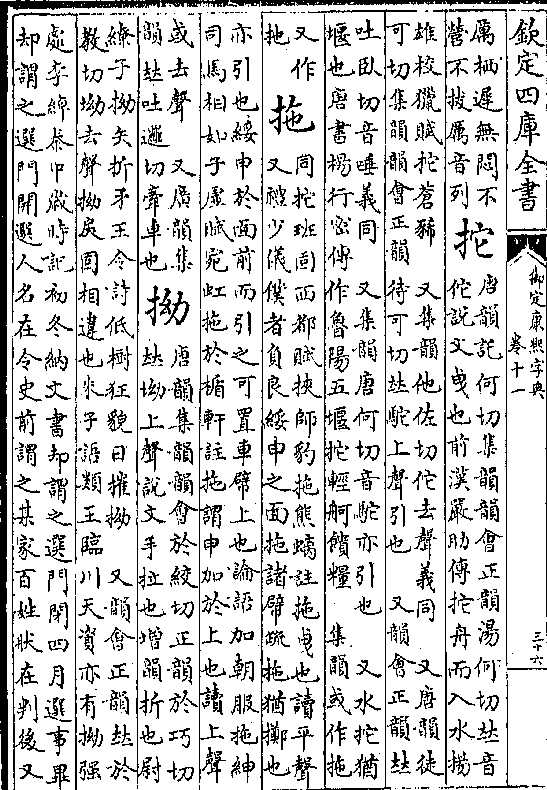 欽定四庫全書
御定康熙字典
卷十一
三十六
厲栖遲無悶不
營不拔厲音列
拕
唐韻託何切集韻韻會正韻湯何切𠀤音
佗說文曳也前漢嚴助傳拕舟而入水揚
雄校獵賦拕蒼豨　又集韻他佐切佗去聲義同　又唐韻徒
可切集韻韻會正韻待可切𠀤駝上聲引也　又韻會正韻𠀤
吐臥切音唾義同　又集韻唐何切音駝亦引也　又水拕猶
堰也唐書楊行密傳作魯陽五堰拕輕舸饋糧　集韻或作拖
又作
拖
拖
同拕班固西都賦挾師豹拖熊螭註拖曳也讀平聲
又禮少儀僕者負良綏申之面拖諸幦疏拖猶擲也
亦引也綏申於面前而引之可置車幦上也論語加朝服拖紳
司馬相如子虛賦宛虹拖於楯軒註拖謂申加於上也讀上聲
或去聲　又廣韻集
韻𠀤吐邏切牽車也
拗
唐韻集韻韻會於絞切正韻於巧切
𠀤坳上聲說文手拉也增韻折也尉
繚子拗矢折矛王令詩低樹狂貌日摧拗　又韻會正韻𠀤於
教切坳去聲拗戾固相違也朱子語類王臨川天資亦有拗强
處李綽秦中歲時記初冬納文書却謂之選門閉四月選事畢
却謂之選門開選人名在令史前謂之某家百姓狀在判後又